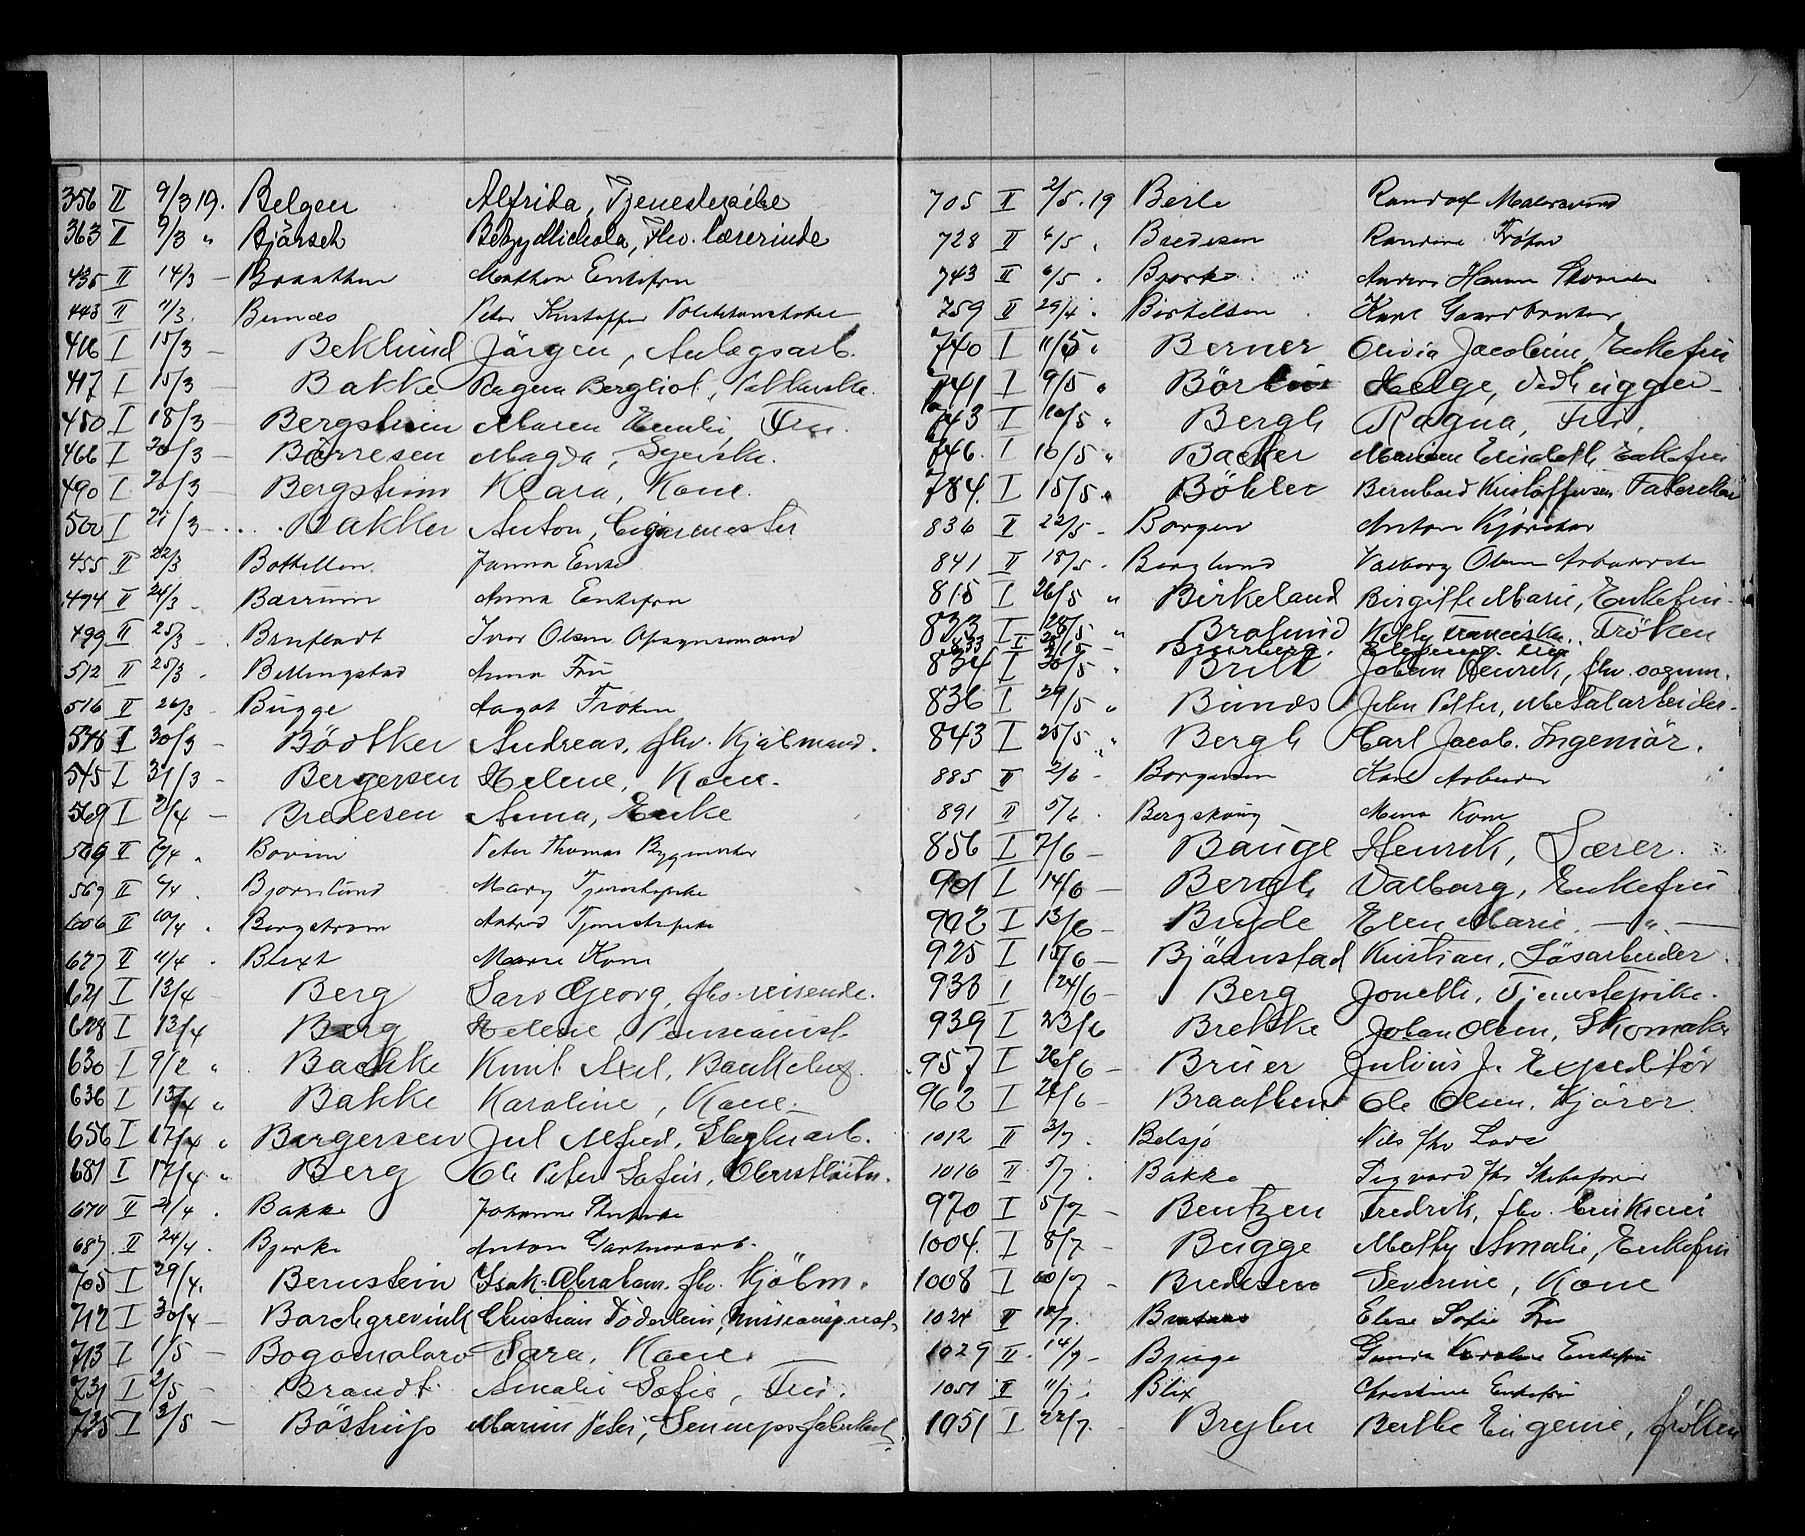 356 II 9/3 19. Belgen Alfrida, Tjenestepike
363 II 9/3 " Bjärsch Betzy Nichola, Fhv. Lærerinde
435 II 14/3 – Braathen Mathea Enkefru
443 II 11/3. Bundes Peter Kristoffer Politikonstabel
416 I 15/3 – Beklund Jörgen, Anlægsarb.
417 I 15/3 – Bakke Ragna Bergliot,
450 I 18/3 – Bergstrøm Maren Emilie, Fru.
466 I 20/3 – Börresen Magda, Syerske.
490 I 20/3 – Bergstrøm Klara, Kone.
500 I 21/3 – Bakker Anton, Cigarmester
455 II 22/3 Bothellen. Janna Enke
494 II 24/3 – Bærrum Anna Enkefru
499 II 25/3 – Brufladt Ivar Olsen Opsynsmand
512 II 25/3 . Billingstad Anna Fru
516 II 26/3 Bugge Aagot Frøken
578 I 30/3 – Bödtker Andreas, fhv. Kjøbmand.
545 I 31/3 – Bergersen Helene, Kone.
569 I 2/4 – Bredesen Anna, Enke
II /4 " Bovim Peter Thomas Bygmester
569 II /4 . Bjørnlund Mary Tjenestepike
606 II 10/4 . Bergstrøm Astrid Tjenestepike
627 II 11/4 . Blixt Marie Kone
621 I 13/4 – Berg Lars Georg, fhv. reisende.
628 I 13/4 Berg Helene Pensionist
630 I 9/2 " Bachke Knut Axel, Bankchef.
636 I 13/4 " Bakke Karoline, Kone.
656 I 17/4 " Bergersen Jul Alfred,
681 I 17/4 " Berg Ole Peter Sofus, Oberstløitn.
670 II 21/4 . Bakke Johanne
687 II 24/4 . Bjerke Anton Gartnerarb.
705 I 29/4. Bernstein Isak Abraham. fhv. Kjöbm.
712 I 30/4 – Borchgrevink Christian Döderlein, missionsprest.
713 I 1/5 – Bogomolaw Sara, Kone.
731 I 2/5 – Brandt Amalie Sofie, Fru.
735 I 3/5 – Böstrup Marius Peter, Sennepsfabrikant.
705 II 2/5 . 19 Beile Randolf Malersvend
728 II 6/5 " Bredesen Randine Frøken
743 II 6/5 . Bjerke Anders Hansen
759 II 29/4 . Bertelsen Karl Gaardbruker
740 I 11/5 " Berner Olivia Jacobine, Enkefru
741 I 9/5 " Helge, Vedhugger –
743 I 10/5 " Bergh Ragna, Fru.
746. I 10/5 " Backer Elisabeth Enkefru
784. I 15/5 " Böhler Bernhard Kristoffersen
836 II 22/5 – Borgen Anton Kjørekar
841 II 18/5 . Berglund Valborg Olsen Arbeiderske
815 I 26/5 " Birkeland Birgitte Marie, Enkefru.
833 I 28/5 " Brolund Franciska, Fröken
833 I Bjerberg.
834 I 30/5 " Britt Johan Henrik, fhv. sogn.
836 I 29/5 " Bundes John Petter, Metalarbeider.
843 I 25/5 " Bergh Carl Jacob. Ingeniör.
885 II 2/6 – Borgersen Karl Arbeider
891 II 5/6 . Bergskaug Mina Kone
856 I 7/6 – Bauge Henrik, Lærer.
901 I 14/6 – Bergh Valborg, Enkefru
902 I 13/6 – Bugde Elen Marie. – " –
925 I 15/6 – Björnstad Kristian, Løsarbeider.
930 I 24/6 – Berg Jonette, Tjenestepike.
939 I 23/6 Brekke Johan Olsen, Skomaker
957 I 26/6 – Bruer Julius J. Expeditör
962 I 28/6 – Braathen Ole Olsen. Kjörer.
1012 II 3/7 . Belsjø Nils fhv Lods
1016 II 5/7 . Bakke Sigvard fhv
970 I 5/7 – Bentzen Fredrik, fhv.
1004. I 8/7 – Bugge Mathy Amalie, Enkefru
1008 I 10/7 – Bredesen Severine, Kone
1024 II 10/7. Elise Sofie Fru
1029 II 14/7 – Bjuge Gunda Karoline Enkefru
1051 II 11/7 . Blix Christine Enkefru
1051 I 22/7. Brejlen Berthe Eugenie, frøken